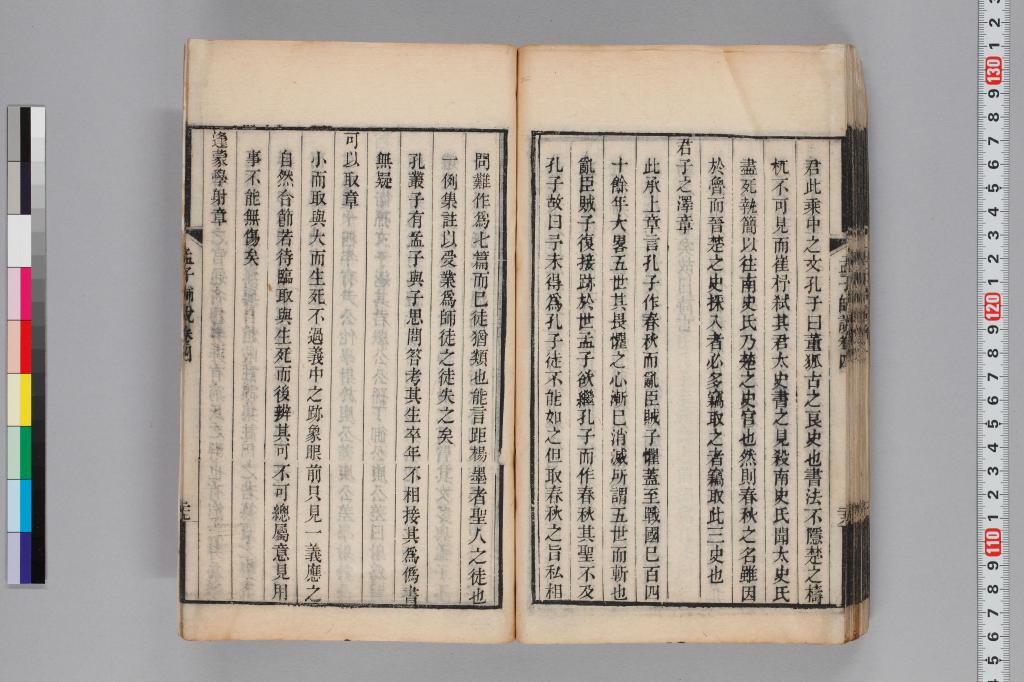 君此乘中之文孔子曰董狐古之良史也書法不隱楚之檮
杌不可見而崔杼弑其君太史書之見殺南史氏聞太史氏
盡死執簡以往南史氏乃楚之史官也然則春秋之名雖因
於魯而晉楚之史採入者必多竊取之者竊取此三史也
君子之澤章
此承上章言孔子作春秋而亂臣賊子懼蓋至戰國已百四
十餘年大畧五世其畏懼之心漸已消滅所謂五世而斬也
亂臣賊子復接跡於世孟子欲繼孔子而作春秋其聖不及
孔子故曰予未得為孔子徒不能如之但取春秋之旨私相
問難作為七篇而已徒猶類也能言距楊墨者聖人之徒也
一例集註以受業為師徒之徒失之矣
孔叢子有孟子與子思問答考其生卒年不相接其為僞書
無疑
可以取章
小而取與大而生死不過義中之跡象眼前只見一義應之
自然合節若待臨取與生死而後辨其可不可總屬意見用
事不能無傷矣
逄蒙學射章
孟子師說卷四